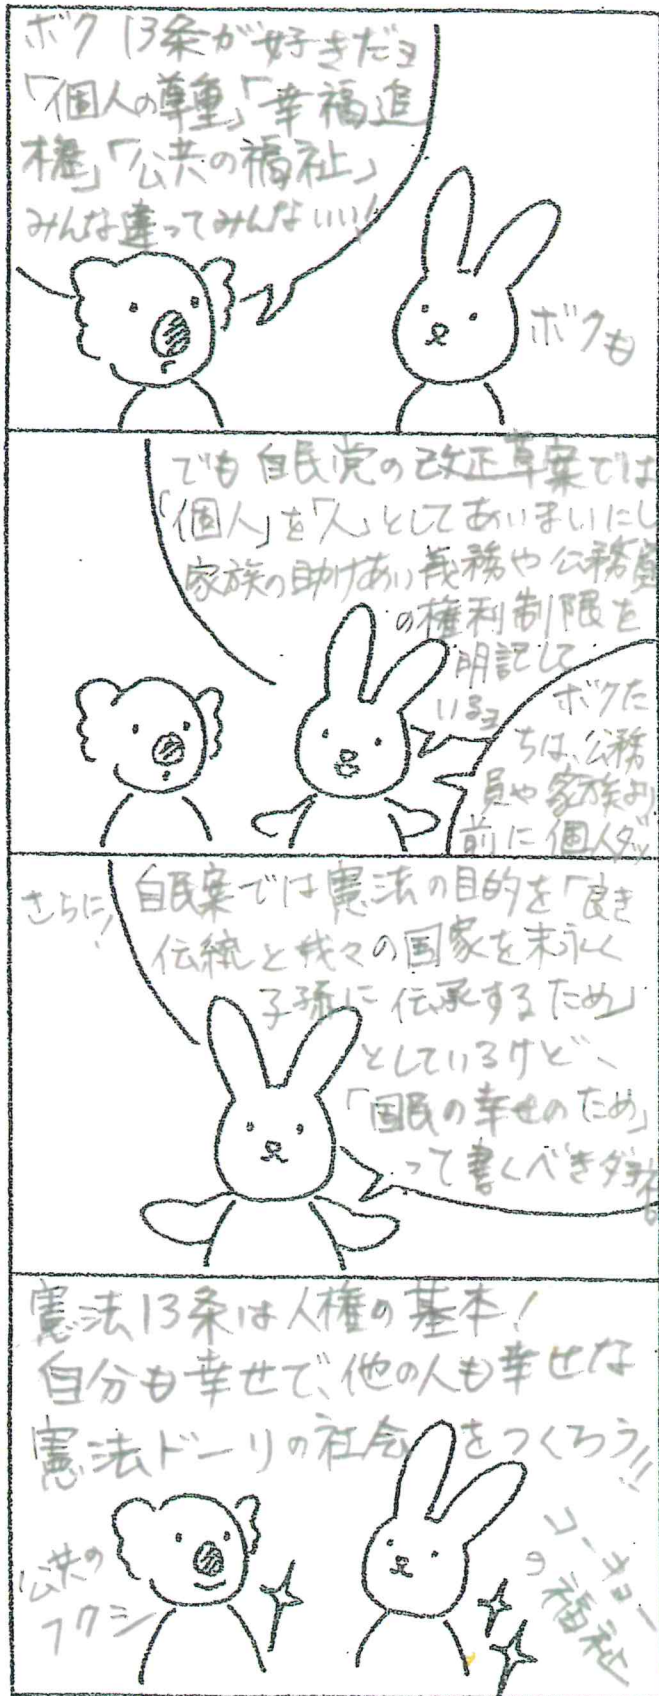 ボク 13条が好きだヨ
「個人の尊重」「幸福追
権」「公共の福祉」
みんな違ってみんないい!
ボクも
でも自民党の改正草案では
「個人」を「人」としてあいまいにし
家族の助けあい義務や公務員
の権利制限を
明記して
いるヨ
ボクた
ちは、公務
員や家族より
前に個人ダッ
さらに!
自民案では憲法の目的を「良き
伝統と我々の国家を末永く
子孫に伝承するため」
としているけど、
「国民の幸せのため」
って書くべきダヨ
憲法13条は人権の基本!
自分も幸せで、他の人も幸せな
憲法ドーリの社会をつくろう!!
公共の
フクシ
コーキョー
の福祉